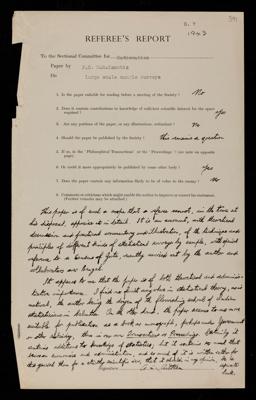 391
R. 7
1943
REFEREE'S REPORT
To the Sectional Committee for Mathematics
Paper by P.C. Mahalanobis
On Large scale sample surveys
1. Is the paper suitable for reading before a meeting of the Society? No
2. Does it contain contributions to knowledge of sufficient scientific interest for the space required? Yes
3. Are any portions of the paper, or any illustrations, redundant? No
4. Should the paper be published by the Society? this remains a question
5. If so, is the 'Philosophical Transactions' or the 'Proceedings' the more appropriate?
6. Or could it more appropriately be published by some other body? Yes
7. Does the paper contain any information likely to be of value to the enemy? No
8. Comments or criticisms which might enable the author to improve or correct his statement.
(Further remarks may be attached)
This paper is of such a scope that a referee cannot, in the time at
his disposal, appraise it in detail. It is an account, with theoretical
discussion and practical commentary and illustration, of the technique and
principles of different kinds of statistical surveys by sample, with special
reference to a Census of Jute, recently carried out by the author and
collaborators in Bengal.
It appears to me that the paper is of both theoretical and adminis-
trative importance. I find no fault any in statistical theory,
the author being the of the flourishing school of Indian
statisticians in Calcutta. On the other hand, the paper seems to me more
suitable for publication as a book or monograph, perhaps under Government
or the Society, than in our Transactions or Proceedings. Certainly it
contains additions to knowledge of statistics, but it contains so much that
concerns economics and administration, and so much of it is
for a strictly scientific , that it should in my opinion be a
separate book.
Signature A. C. Aitken